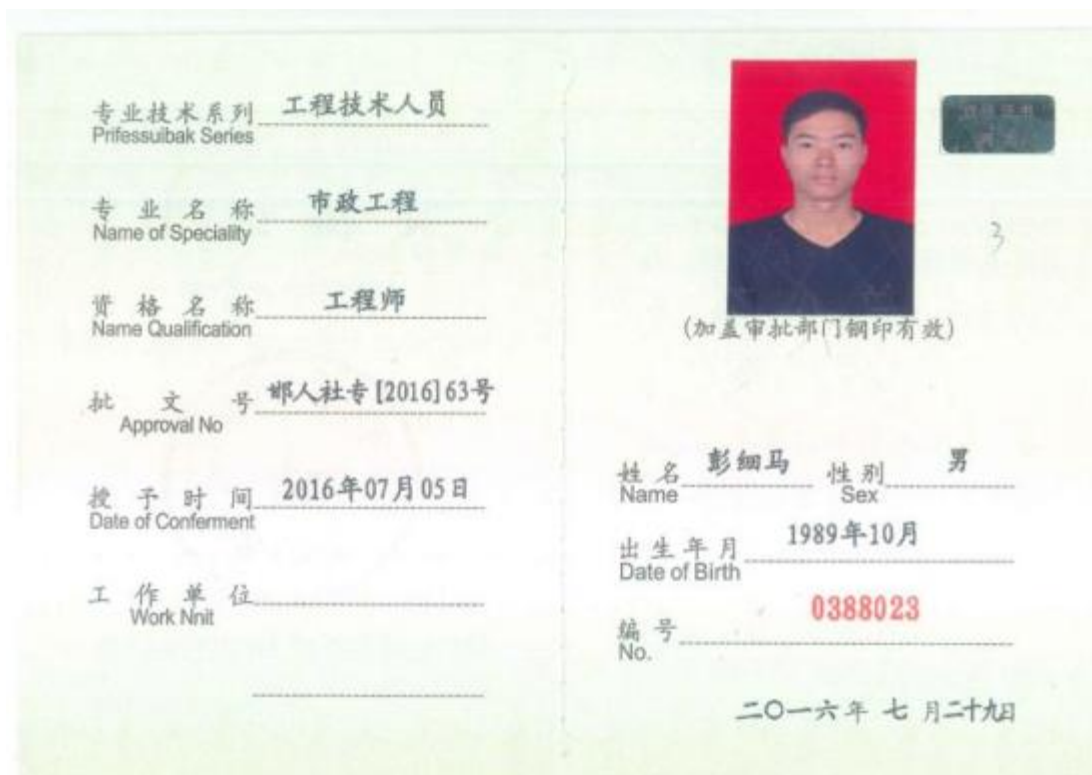 专业技术系列 工程技术人员
Prifessuibak Series
专业名称 市政工程
Name of Speciality
资格名称 工程师
Name Qualification
批文号 邯人社专[2016]63号
Approval No
授予时间 2016年07月05日
Date of Conferment
工作单位
Work Nnit
3
(加盖审批部门钢印有效)
姓名 彭细马 性别 男
Name Sex
出生年月 1989年10月
Date of Birth
编号 0388023
No.
二〇一六年 七 月二十九日